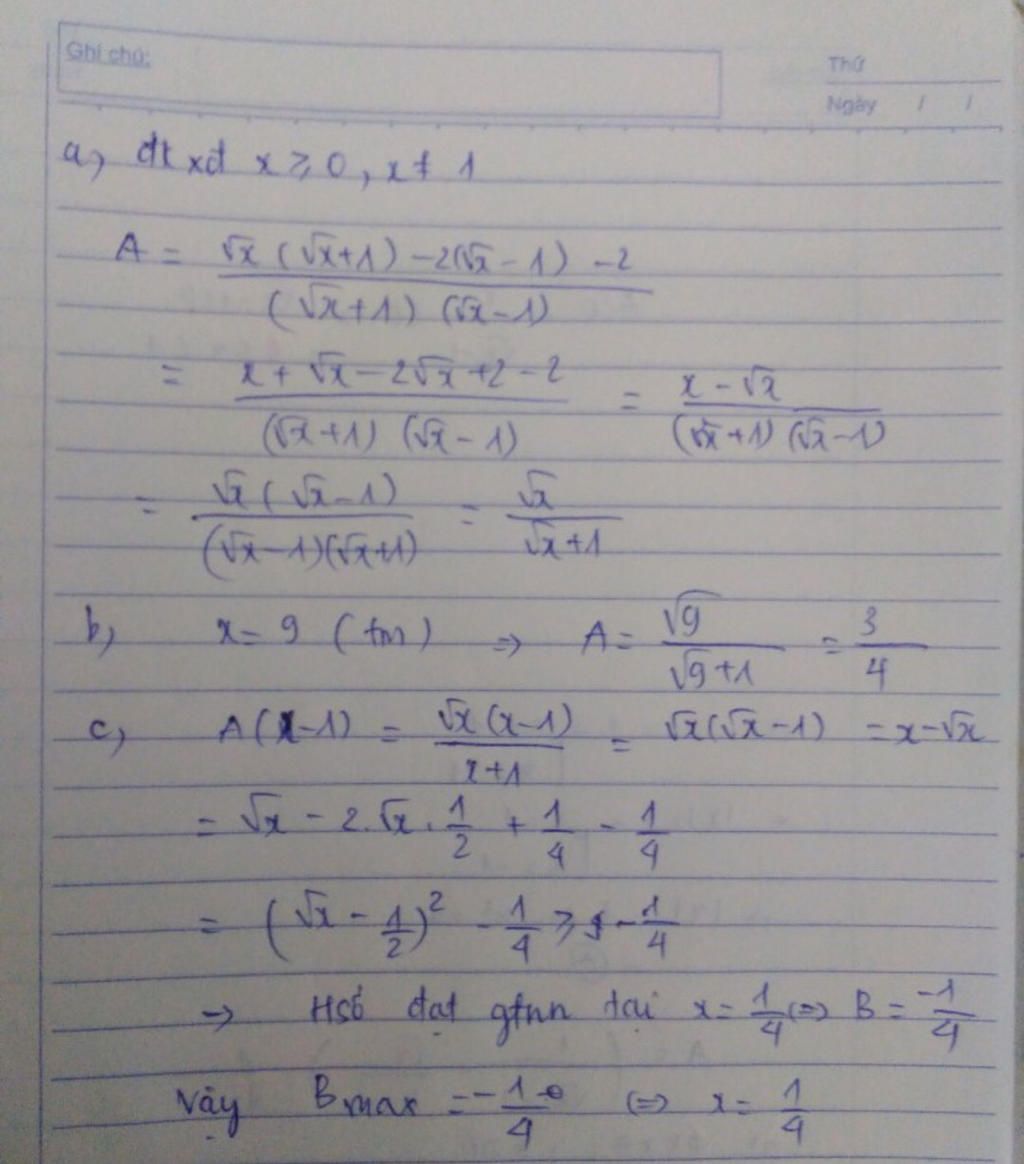 Ghi chú:
Thứ
Ngày / /
a, đkxđ x ≥ 0, x ≠ 1
A = (√x (√x+1) - 2(√x - 1) - 2) / ((√x+1) (√x-1))
= (x + √x - 2√x + 2 - 2) / ((√x+1) (√x - 1)) = (x - √x) / ((√x+1) (√x-1))
= (√x (√x-1)) / ((√x-1)(√x+1)) = √x / (√x+1)
b, x = 9 (tm) => A = √9 / (√9+1) = 3/4
c, A(x-1) = (√x (x-1)) / (x+1) = √x(√x-1) = x-√x
= √x - 2.√x.1/2 + 1/4 - 1/4
= (√x - 1/2)² - 1/4 ≥ -1/4
-> Hsố đạt gtnn tại x = 1/4 (=) B = -1/4
Vậy Bmax = -1/4 (=) x = 1/4